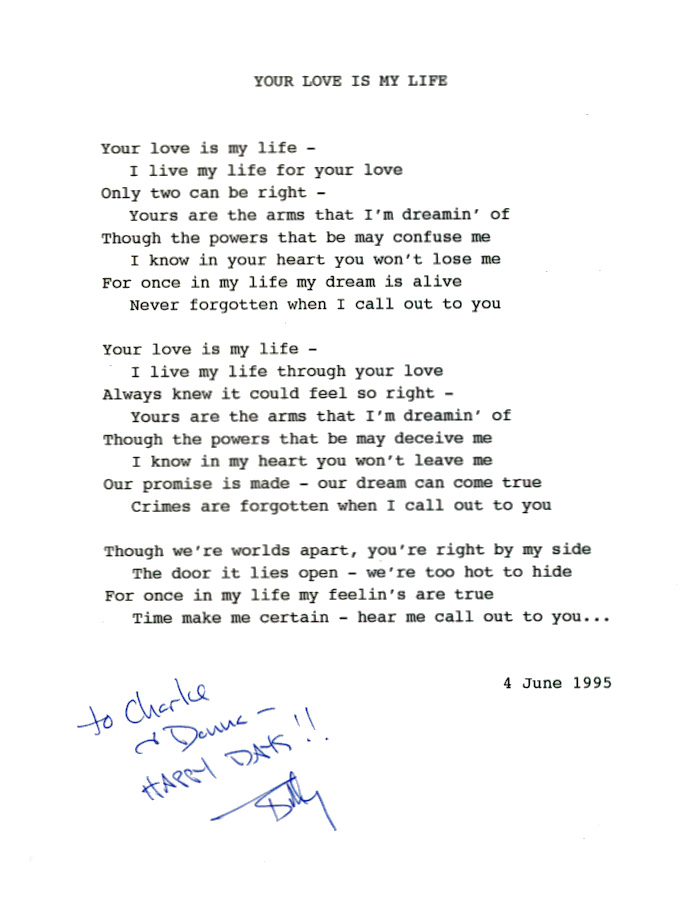 YOUR LOVE IS MY LIFE
Your love is my life -
I live my life for your love
Only two can be right -
Yours are the arms that I'm dreamin' of
Though the powers that be may confuse me
I know in your heart you won't lose me
For once in my life my dream is alive
Never forgotten when I call out to you
Your love is my life -
I live my life through your love
Always knew it could feel so right -
Yours are the arms that I'm dreamin' of
Though the powers that be may deceive me
I know in my heart you won't leave me
Our promise is made - our dream can come true
Crimes are forgotten when I call out to you
Though we're worlds apart, you're right by my side
The door it lies open - we're too hot to hide
For once in my life my feelin's are true
Time make me certain - hear me call out to you...
4 June 1995
to Charlie
& Donna -
HAPPY DAYS!!
Billy